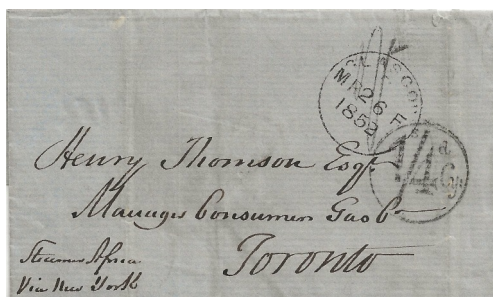 GLASGOW
MR 26 F
1852
Henry Thomson Esqr
Manager Consumers Gas Co
Toronto
Steamer Africa
Via New York